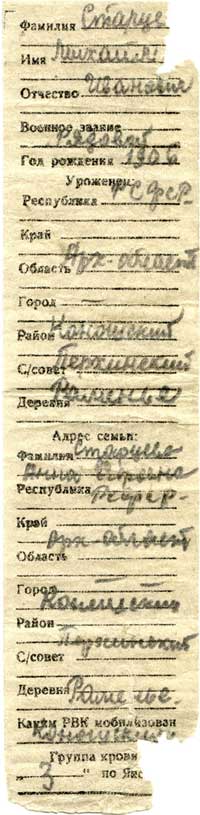 Фамилия Старце
Имя Михайл
Отчество Иванович
Военное звание
Рядовой
Год рождения 1906
Уроженец:
Республика РСФСР
Край
Область Арх-област
Город —
Район Коношский
С/совет
Деревня Раменье
Адрес семьи:
Фамилия Старцева
Анна
Республика РСФСР-
Край
Арх-област
Область
Город —
Коношский
Район
С/совет
Деревня Раменье
Каким РВК мобилизован
Коношским
Группа крови
„ 3 “ по Янс